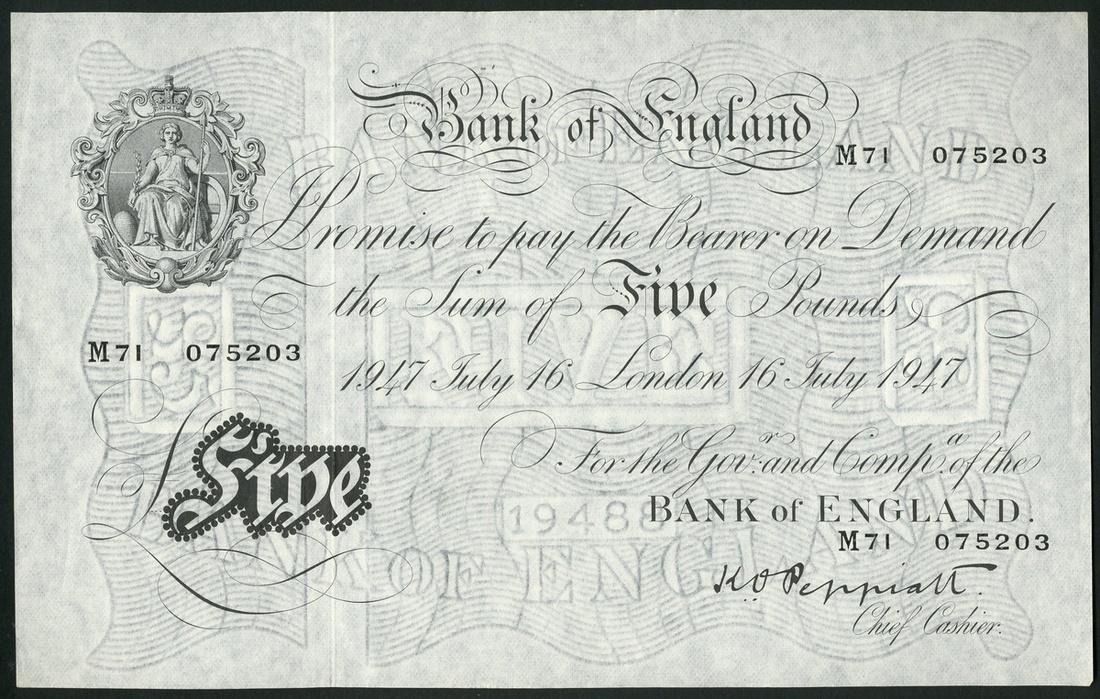 Bank of England
M71 075203
I Promise to pay the Bearer on Demand
the Sum of Five Pounds
M71 075203
1947 July 16 London 16 July 1947
£Five
For the Gov.r and Comp.a of the
BANK of ENGLAND.
M71 075203
K O Peppiatt.
Chief Cashier.
BANK OF ENGLAND
FIVE
BANK OF ENGLAND